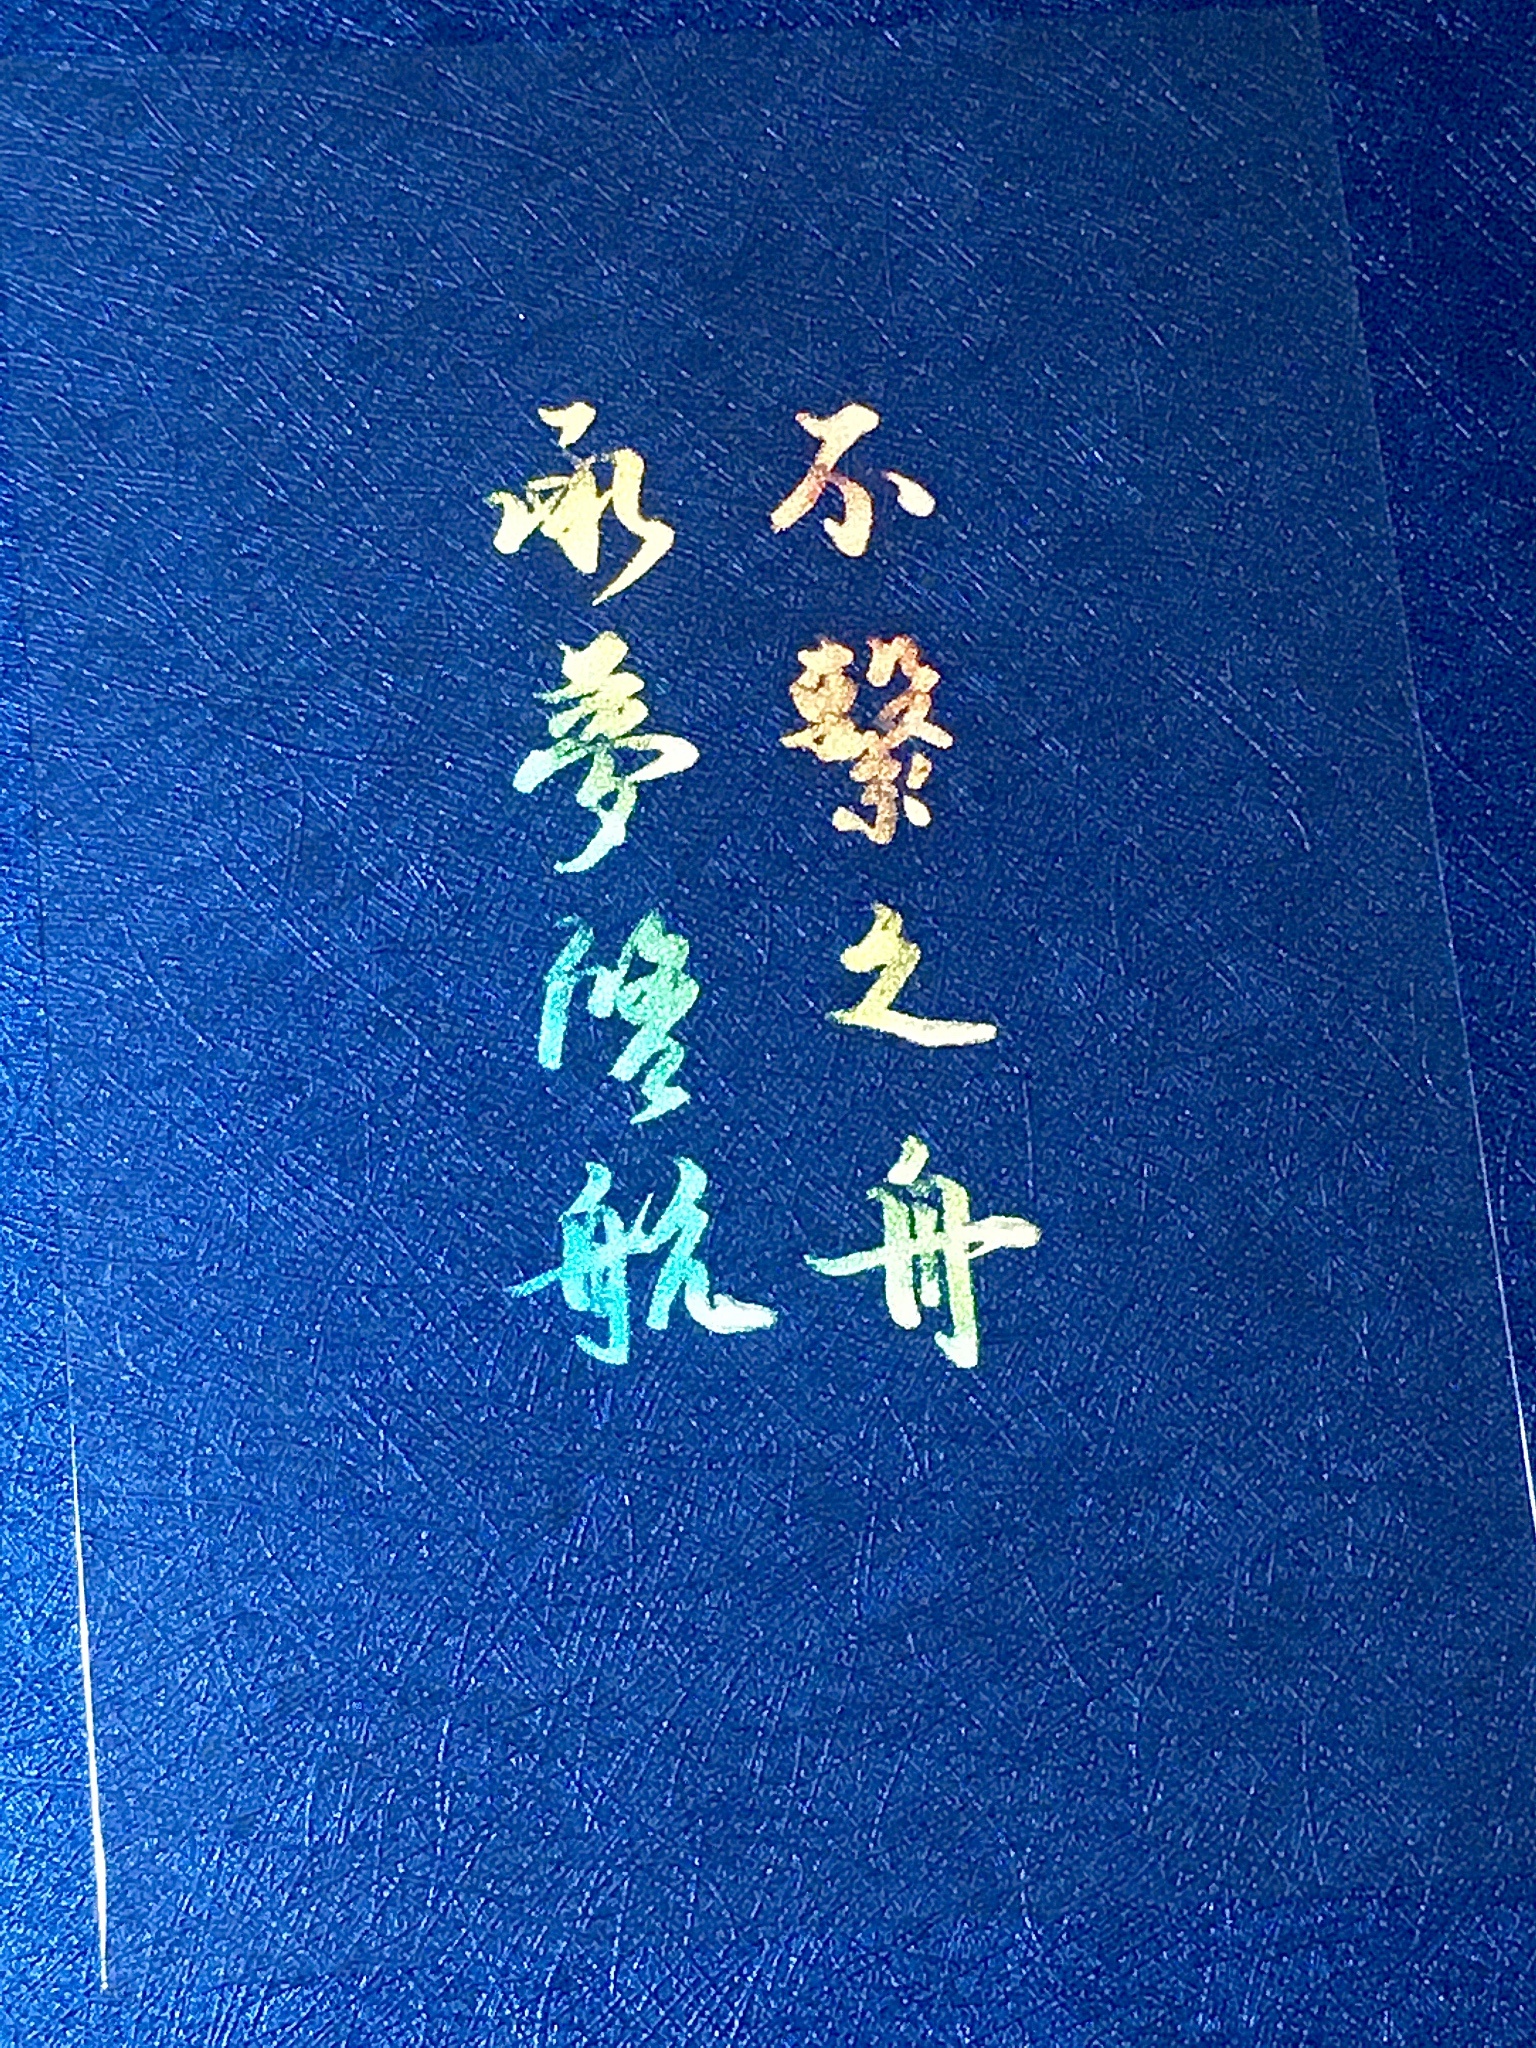 不繫之舟
永夢隆航